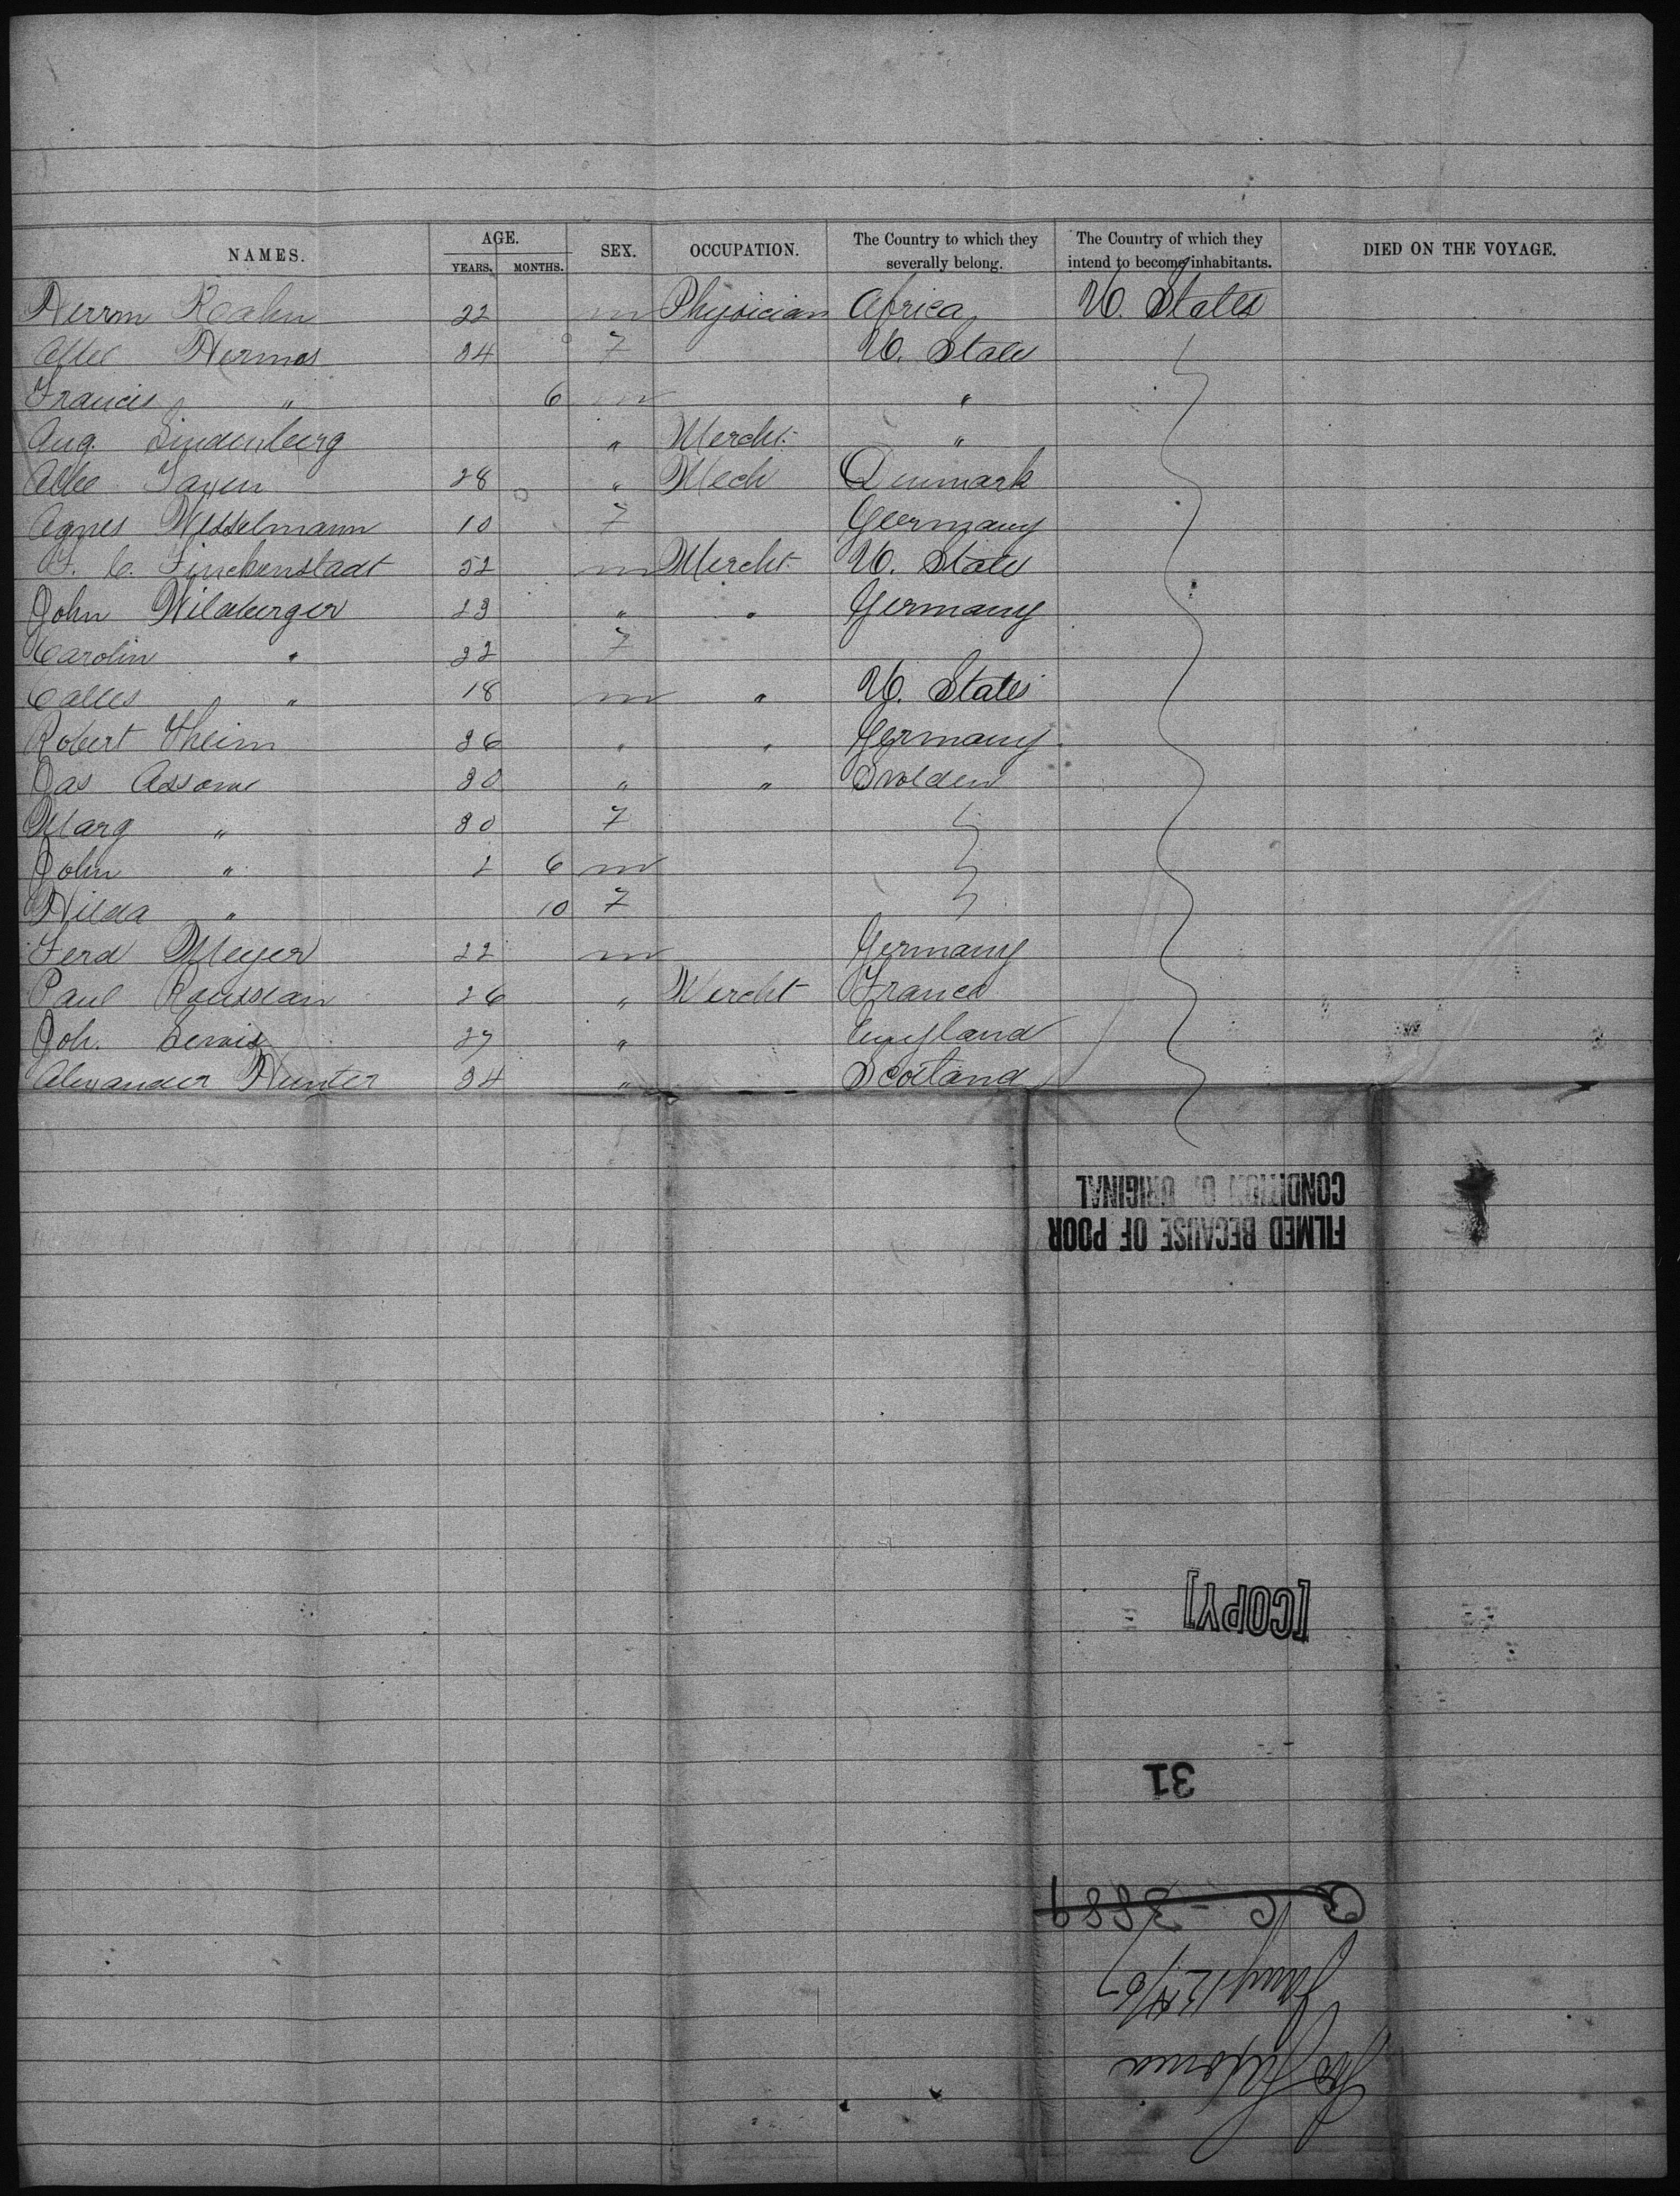 NAMES. AGE. YEARS. MONTHS. SEX. OCCUPATION. The Country to which they severally belong. The Country of which they intend to become inhabitants. DIED ON THE VOYAGE.
Herrm Roahn 22 m Physician Africa U. States
Hermes 34 F U. State
Francis " 6 m "
Aug. Lindenberg " Mercht. "
28 " Mech Denmark
Agnes Wesselmann 10 F Germany
F. C. Finckenstadt 52 m Mercht. U. State
John Wildberger 23 " " Germany
Carolin " 22 F
18 m " U. States
Robert Theim 36 " " Germany
Jas Assome 30 " " Sweden
Marg " 30 F
John " 2 6 m
Hilda " 10 F
Ferd Meyer 22 m Germany
Paul Roussean 26 " Mercht France
Joh. Lewis 27 " England
Alexander Hunter 34 " Scotland
FILMED BECAUSE OF POOR
CONDITION OF ORIGINAL
[COPY]
31